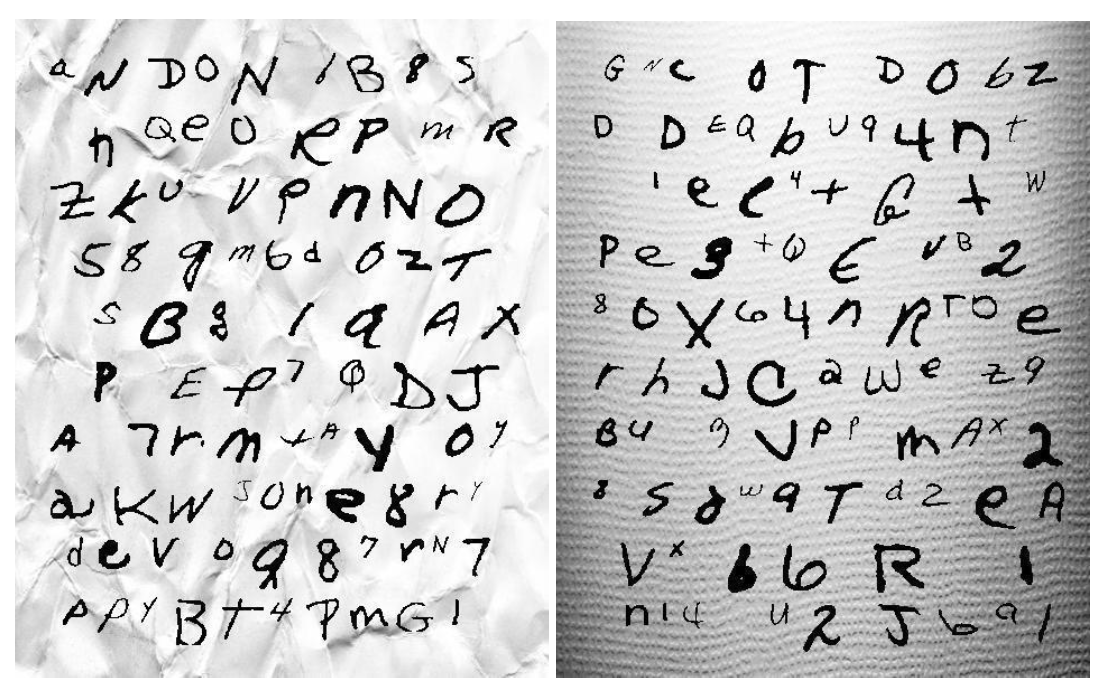 a N D O N 1 B 8 S
n Q e O R P m R
Z k U V P n N O
S 8 g m 6 d O Z T
S B 8 1 q A X
P E P 7 Q D J
A 7 r m t A y O Y
a K W J O n e 8 r Y
d e V O q 8 7 r N 7
P P Y B t 4 P m G 1
G N C O T D O b Z
D D E Q b U 9 4 n t
1 e C 4 t G t W
P e 3 t Q E V B 2
8 O X 6 4 n R T O e
r h J C a W e Z 9
B 4 9 J P P m A X 2
8 S d W 9 T d 2 e A
V X 6 6 R 1
n 1 4 U 2 J 6 9 1